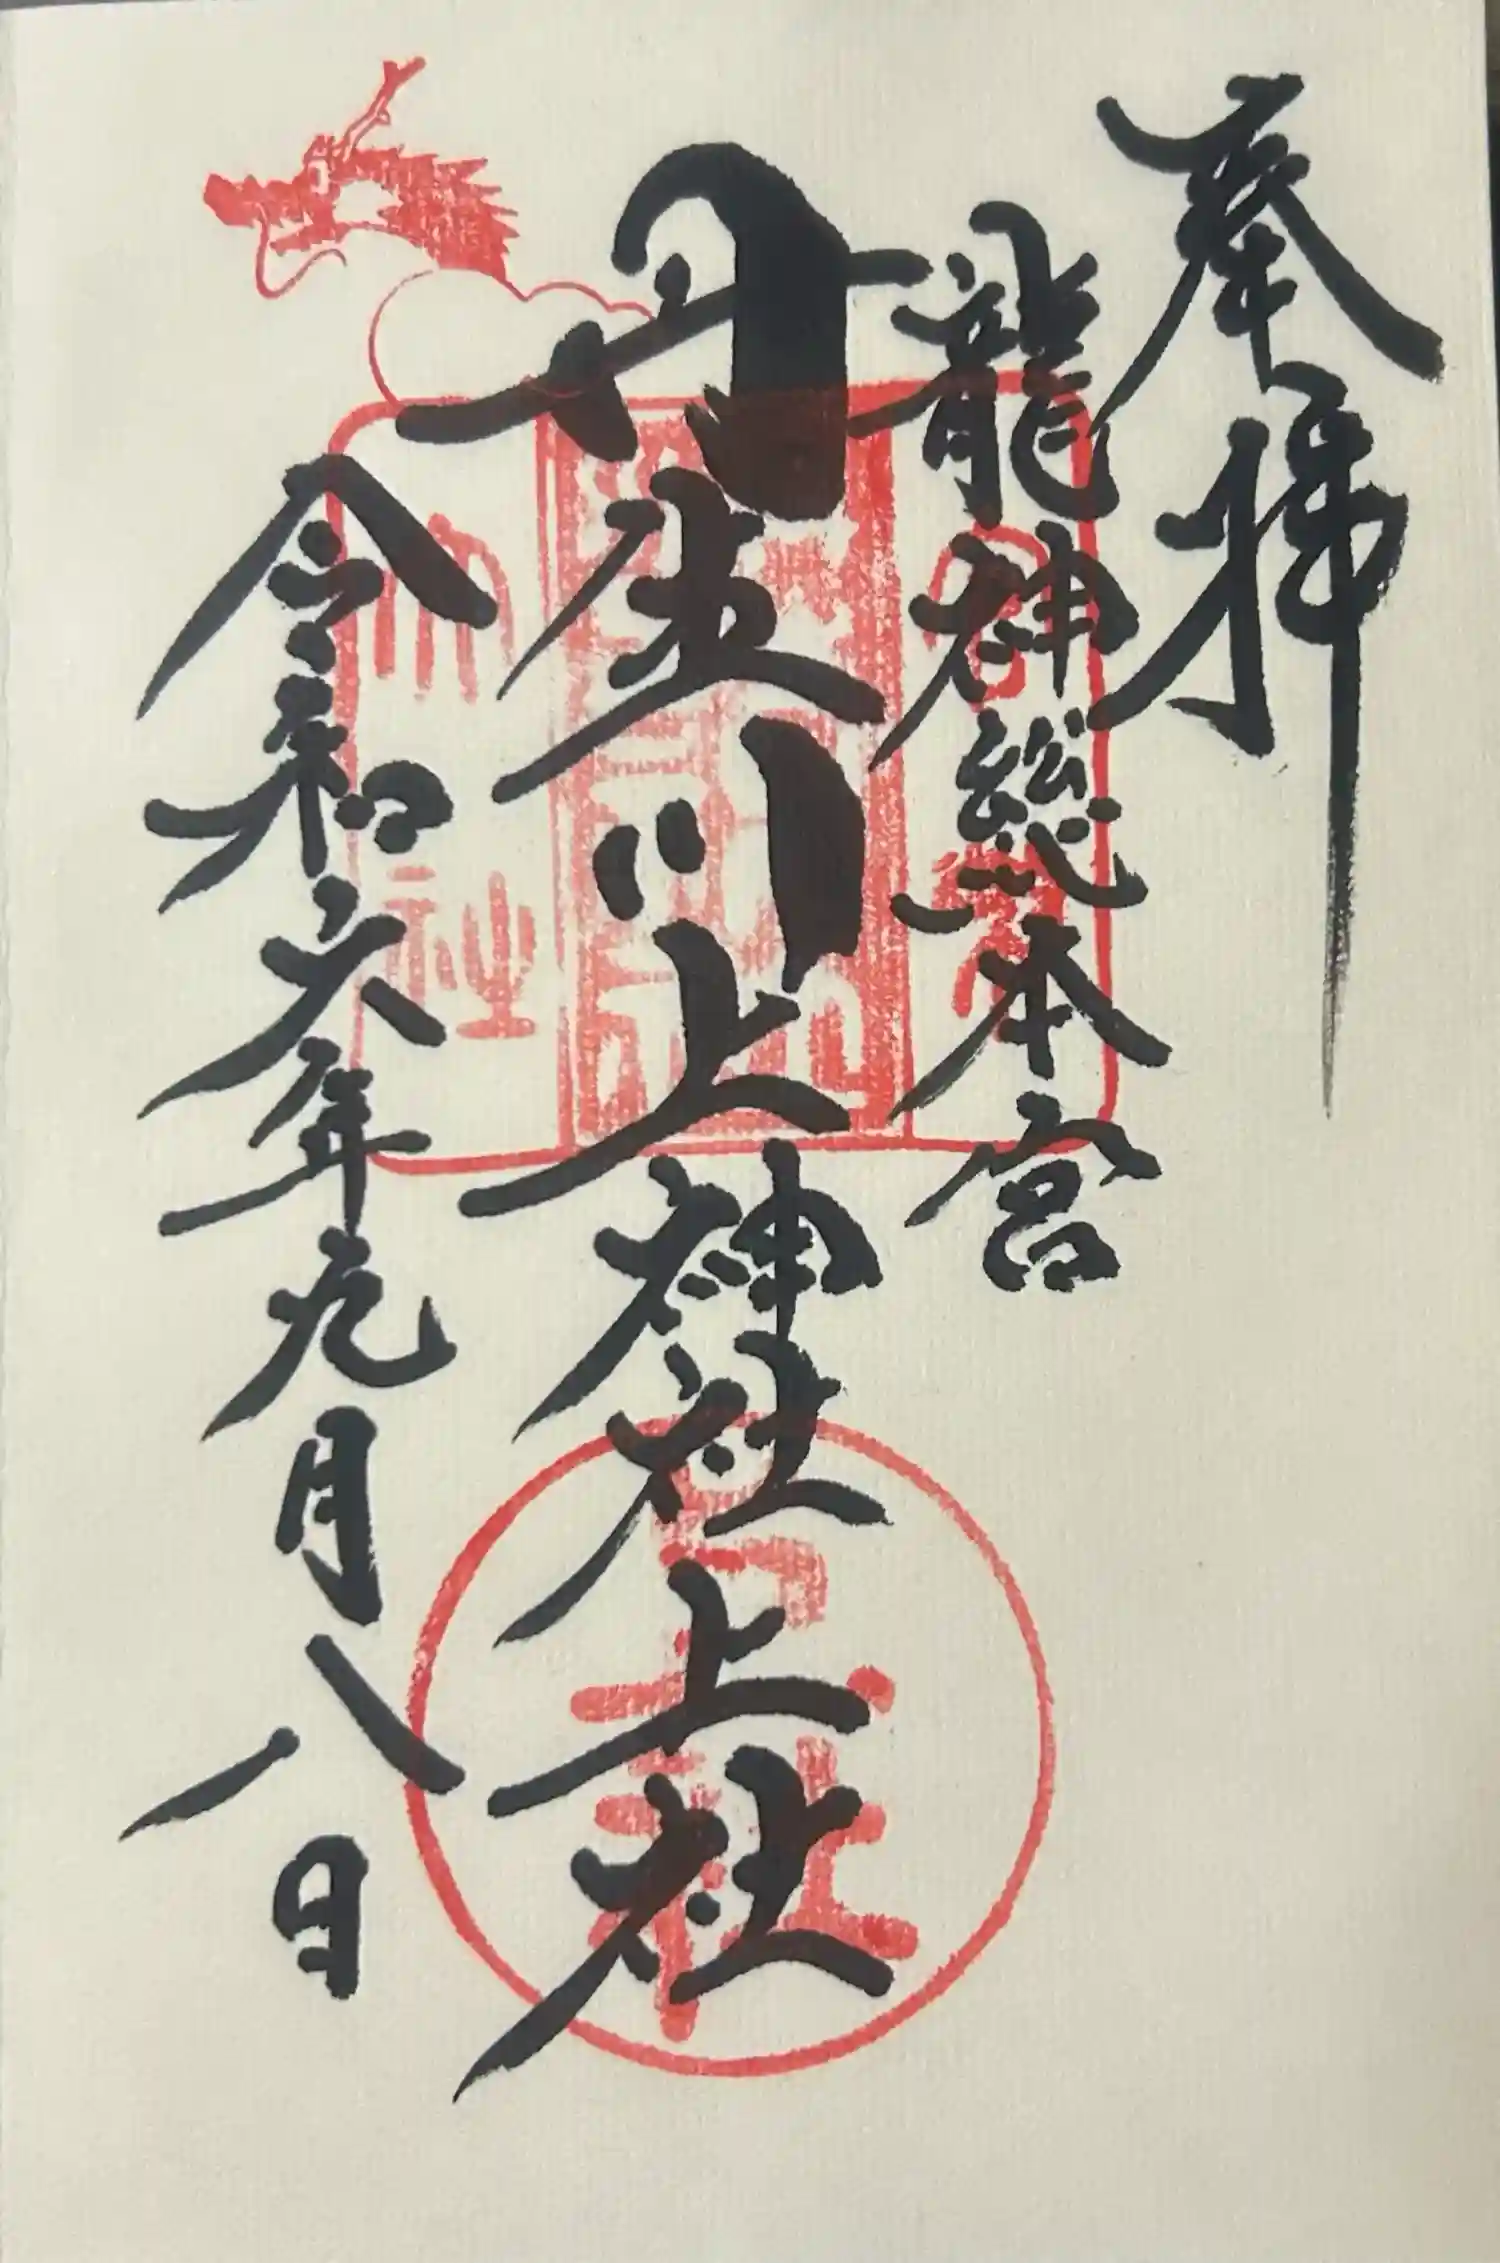 奉拝
龍神総本宮
丹生川上神社上社
令和六年九月八日